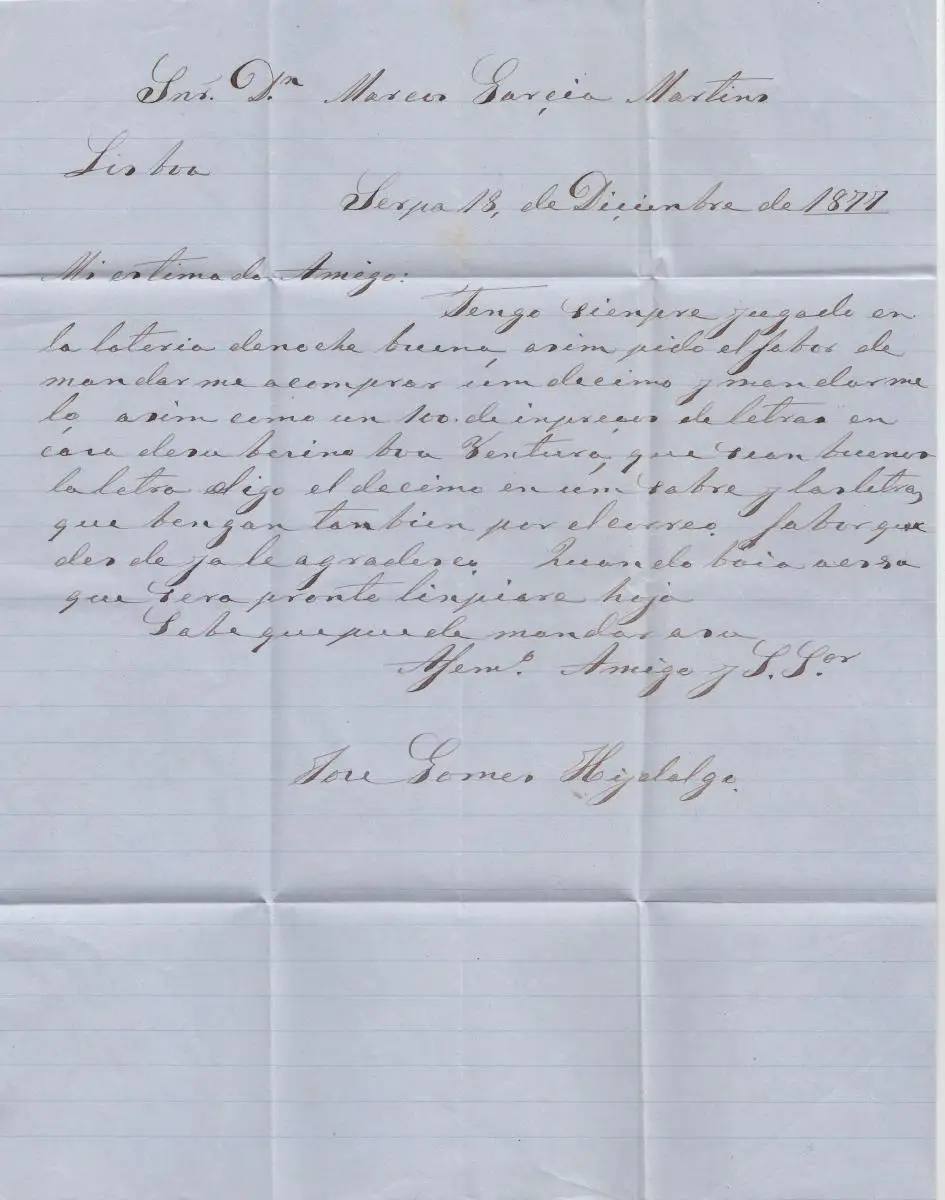 Snr. Dn Marcos Garçia Martins
Lisboa
Serpa 18, de Diçienbre de 1877
Mi estimado Amigo:
Tengo sienpre jugado en
la loteria denoche buena, asim pido el fabor de
mandarme acomprar úm decimo y mandarme
lo asim como un 100. de inpreços de letras en
casa desu becino boa Ventura, que sean buenos
la letra digo el decimo en um sobre y las letras
que bengan tanbien por el correo. fabor que
desde ja le agradesco. Quando baia aessa
que sera pronto linpiare hoja
Sabe quepuede mandar asu
Afemo. Amigo y S. Sor
Jose Gomes Hijdalgo.